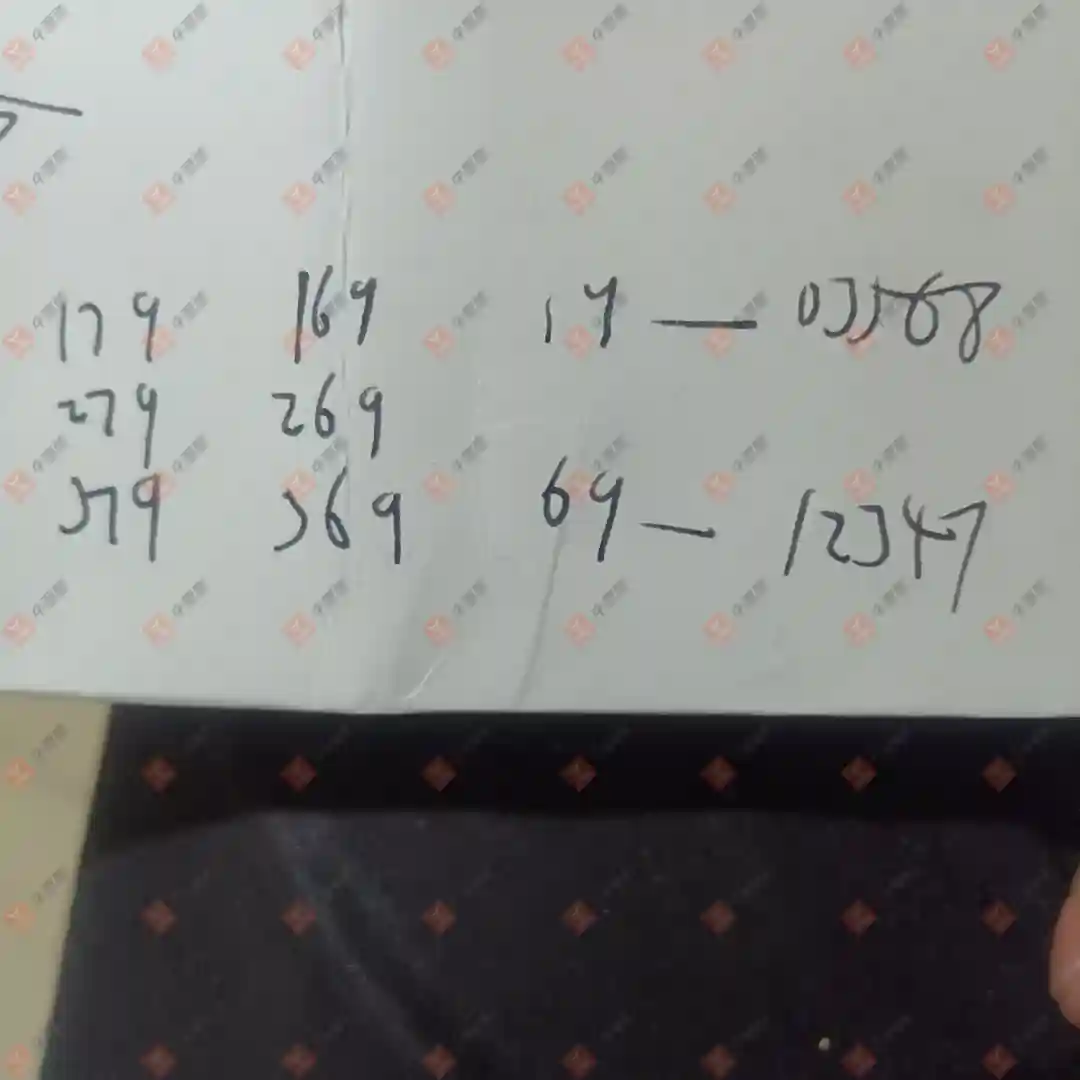 179 169 19 — 03568
279 269
379 369 69 — 12347